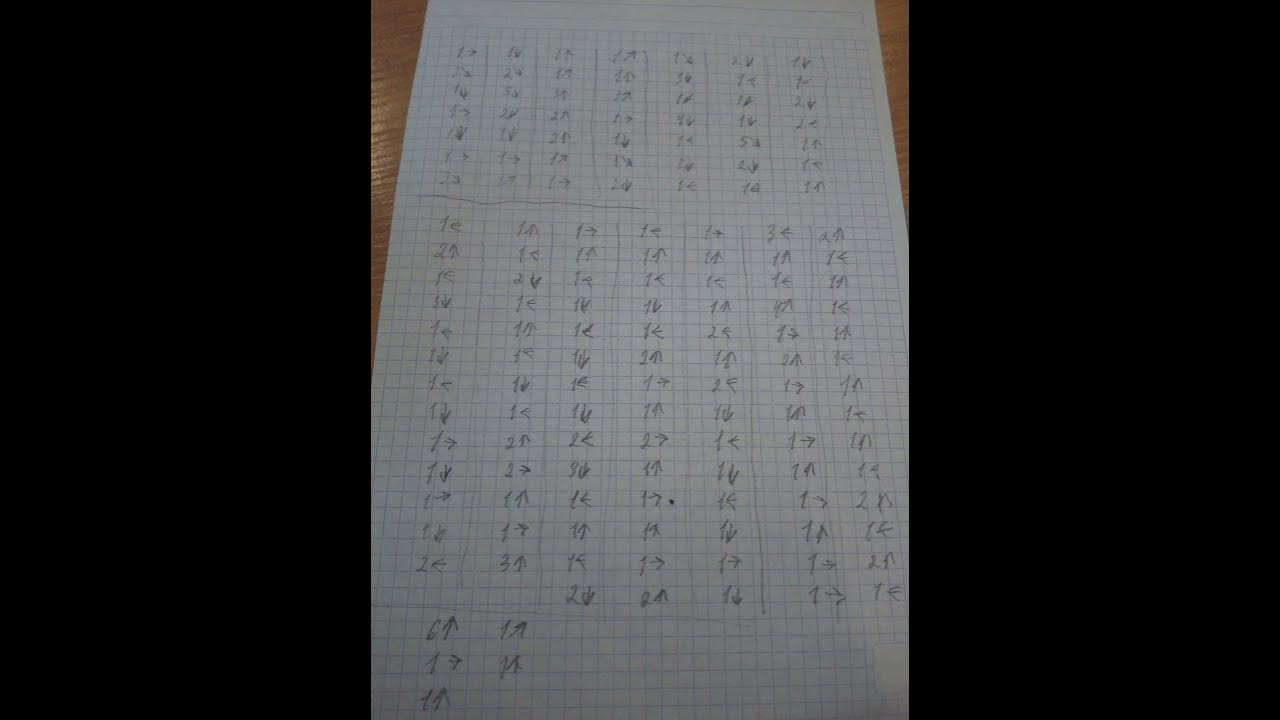 1→ 1↓ 1↑ 1↗ 1↘ 2↓ 1↓
3↘ 2→ 1↑ 1↑ 3↓ 1← 1←
1↓ 5↓ 3↑ 3↑ 1↓ 3↓ 2↓
1→ 2↓ 2↑ 1→ 1↓ 2←
1↓ 1↓ 2↑ 1↓ 1← 5↘ 1↑
1→ 1→ 1↑ 1↘ 3↓ 2↓ 1←
1→ 2↓ 1← 1← 1↑
1← 1↑ 1→ 1← 1→ 3← 2↑
2↑ 1← 1↑ 1↑ 1↑ 1↑ 1←
1← 2↓ 1← 1← 1← 1← 1↑
3↓ 1← 1↓ 1↓ 1↑ 4↑ 1←
1← 1↑ 1← 1← 2← 1→ 1↑
1↓ 1← 1↓ 3↑ 1↑ 2↑ 1←
1← 1↓ 1← 1→ 2← 1→ 1↑
1↓ 1← 1↓ 1↑ 1↓ 1↑ 1←
1→ 2↑ 2← 2→ 1← 1→ 1↑
1↓ 2→ 3↓ 1↑ 1↓ 1↑ 1←
1→ 1↑ 1← 1→ 1← 1→ 2↑
1↓ 1→ 1↑ 1↑ 1↓ 1↑ 1←
2← 3↑ 1← 1→ 1→ 1→ 2↑
2↓ 2↑ 1↓ 1→ 1←
6↑ 1↗
1→ 1↑
1↑